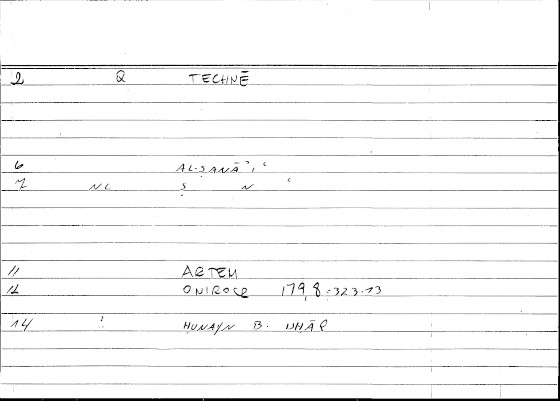 2 Q TECHNĒ
6 AL-ṢANĀʾIʿ
7 NC Ṣ N ʿ
11 ARTEM
12 ONIROCR 179,8=323.13
14 ! HUNAYN B. ISHĀQ